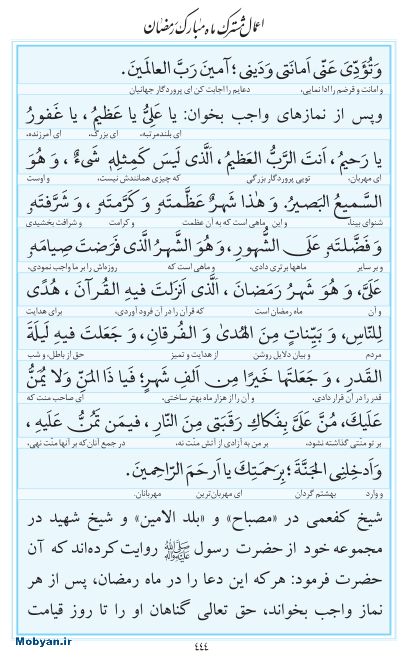 اعمال مشترک ماه مبارک رمضان
وَتُؤَدِّیَ عَنّی اَمانَتی وَدَینی؛ آمینَ رَبَّ العالَمینَ.
و امانت و قرضم را ادا نمایی، دعایم را اجابت کن ای پروردگار جهانیان
وپس از نمازهای واجب بخوان: یا عَلِیُّ یا عَظیمُ ، یا غَفورُ
ای بلندمرتبه، ای بزرگ، ای آمرزنده،
یا رَحیمُ، اَنتَ الرَّبُّ العَظیمُ، اَلَّذی لَیسَ کَمِثلِهِ شَیءٌ ، وَ هُوَ
ای مهربان. تویی پروردگار بزرگی که چیزی همانندش نیست، و اوست
السَّمیعُ البَصیرُ. وَ هٰذا شَهرٌ عَظَّمتَهُ وَ کَرَّمتَهُ ، وَ شَرَّفتَهُ
شنوای بینا. و این ماهی است که به آن عظمت و کرامت و شرافت بخشیدی
وَ فَضَّلتَهُ عَلَی الشُّهورِ، وَ هُوَ الشَّهرُ الَّذی فَرَضتَ صِیامَهُ
و بر سایر ماهها برتری دادی، و ماهی است که روزه‌اش را بر ما واجب نمودی،
عَلَیَّ، وَ هُوَ شَهرُ رَمَضانَ ، اَلَّذی اَنزَلتَ فیهِ القُرآنَ ، هُدًی
و آن ماه رمضان است که قرآن را در آن فرود آوردی، برای هدایت
لِلنّاسِ، وَ بَیِّناتٍ مِنَ الهُدیٰ وَ الفُرقانِ، وَ جَعَلتَ فیهِ لَیلَةَ
مردم و بیان دلایل روشن از هدایت و تمیز حق از باطل، و شب
القَدرِ ، وَ جَعَلتَها خَیرًا مِن اَلفِ شَهرٍ؛ فَیا ذَا المَنِّ وَلا یُمَنُّ
قدر را در آن قرار دادی، و آن را از هزار ماه بهتر ساختی. ای صاحب منت که
عَلَیکَ، مُنَّ عَلَیَّ بِفَکاکِ رَقَبَتی مِنَ النّارِ ، فیمَن تَمُنُّ عَلَیهِ ،
بر تو منّتی گذاشته نشود، بر من به آزادی از آتش منّت نه، در جمع آنان که بر آنها منّت نهی،
وَاَدخِلنِی الجَنَّةَ ؛ بِرَحمَتِکَ یا اَرحَمَ الرّاحِمینَ.
و وارد بهشتم گردان ای مهربان‌ترین مهربانان.
شیخ کفعمی در «مصباح» و «بلد الامین» و شیخ شهید در
مجموعه خود از حضرت رسول ﷺ روایت کرده‌اند که آن
حضرت فرمود: هر که این دعا را در ماه رمضان، پس از هر
نماز واجب بخواند، حق تعالی گناهان او را تا روز قیامت
Mobyan.ir
۴۴۴